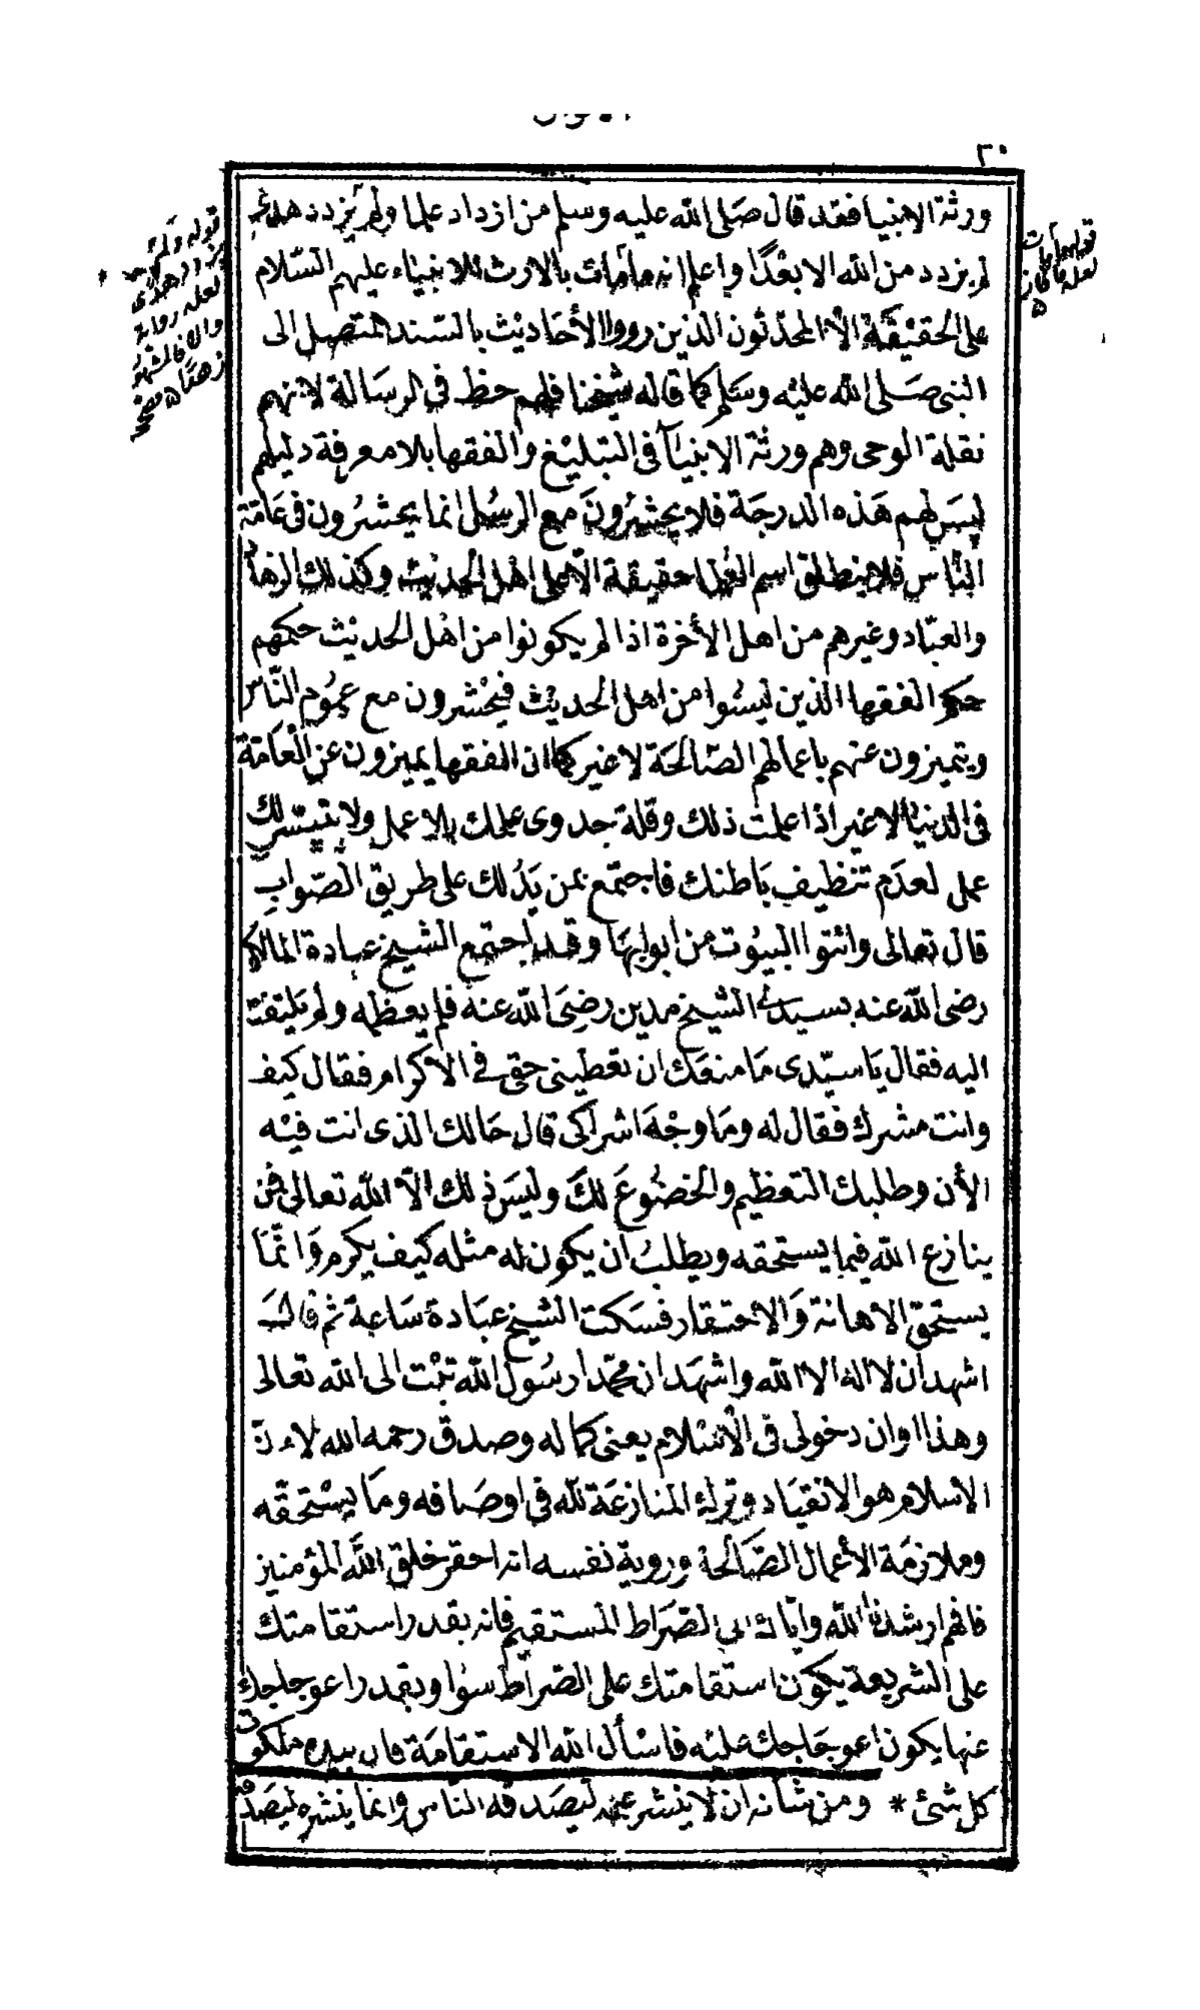 ٢٠
ورثة الانبيا فقد قال صلى الله عليه وسلم من ازداد علما ولم يزدد هدى
لم يزدد من الله الا بعدًا واعلم انه ما مات بالارث للانبياء عليهم السّلام
على الحقيقة الا المحدّثون الذين رووا الأحاديث بالسند المتصل الى
النبى صلى الله عليه وسلم كما قاله شيخنا فلهم حظ فى الرسالة لانهم
نقلة الوحى وهم ورثة الانبيآ فى التبليغ والفقها بلا معرفة دليلهم
ليس لهم هذه الدرجة فلا يحشرون مع الرسل انما يحشرون فى عامة
النّاس فلا ينطلق اسم العلما حقيقة الا على اهل الحديث وكذلك الزهاد
والعبّاد وغيرهم من اهل الأخرة اذا لم يكونوا من اهل الحديث حكمهم
حكم الفقها الذين ليسُوا من اهل الحديث فيحشرون مع عمُوم النّاس
ويتميزون عنهم باعمالهم الصّالحة لا غير كما ان الفقها يميزون عن العامّة
فى الدنيا لا غير اذا علمت ذلك وقلة جدوى علمك بلا عمل ولا تيسّر لك
عمل لعدم تنظيف باطنك فاجتمع بمن يدُلك على طريق الصّواب
قال تعالى وائتوا البيُوت من ابوابها وقد اجتمع الشيخ عبادة المالكى
رضى الله عنه بسيدى الشيخ مدين رضى الله عنه فلم يعظمه ولم يلتفت
اليه فقال يا سيّدى ما منعك ان تعطينى حقى فى الاكرام فقال كيف
وانت مشرك فقال له وما وجه اشراكى قال حالك الذى انت فيه
الأن وطلبك التعظيم والخضُوع لك وليس ذلك الّا الله تعالى فمن
ينازع الله فيما يستحقه ويطلب ان يكون له مثله كيف يكرم وانّما
يستحق الاهانة والاحتقار فسكت الشيخ عبادة ساعة ثم قال
اشهد ان لا اله الا الله واشهد ان محمّدا رسُول الله تبت الى الله تعالى
وهذا اوان دخولى فى الاسلام يعنى كماله وصدق رحمه الله لان
الأسلام هو الانقياد وترك المنازعة لله فى اوصافه وما يستحقّه
وملازمة الأعمال الصّالحة وروية نفسه انه احقر خلق الله المؤمنين
فافهم ارشدنا الله واياك الى الصّراط المستقيم فانه بقدر استقامتك
على الشريعة يكون استقامتك على الصّراط سوا وبقدر اعوجاجك
عنها يكون اعوجاجك عليه فاسأل الله الاستقامة فان بيده ملكوت
كل شئ * ومن شانه ان لا ينشر علمه ليصدقه النّاس وانما ينشره ليصدق
قوله ما مات
لعله ما فاز
قوله ولم
يزدد هدى
لعله رواية
والا فالمشهور
زهدا اه مصححه